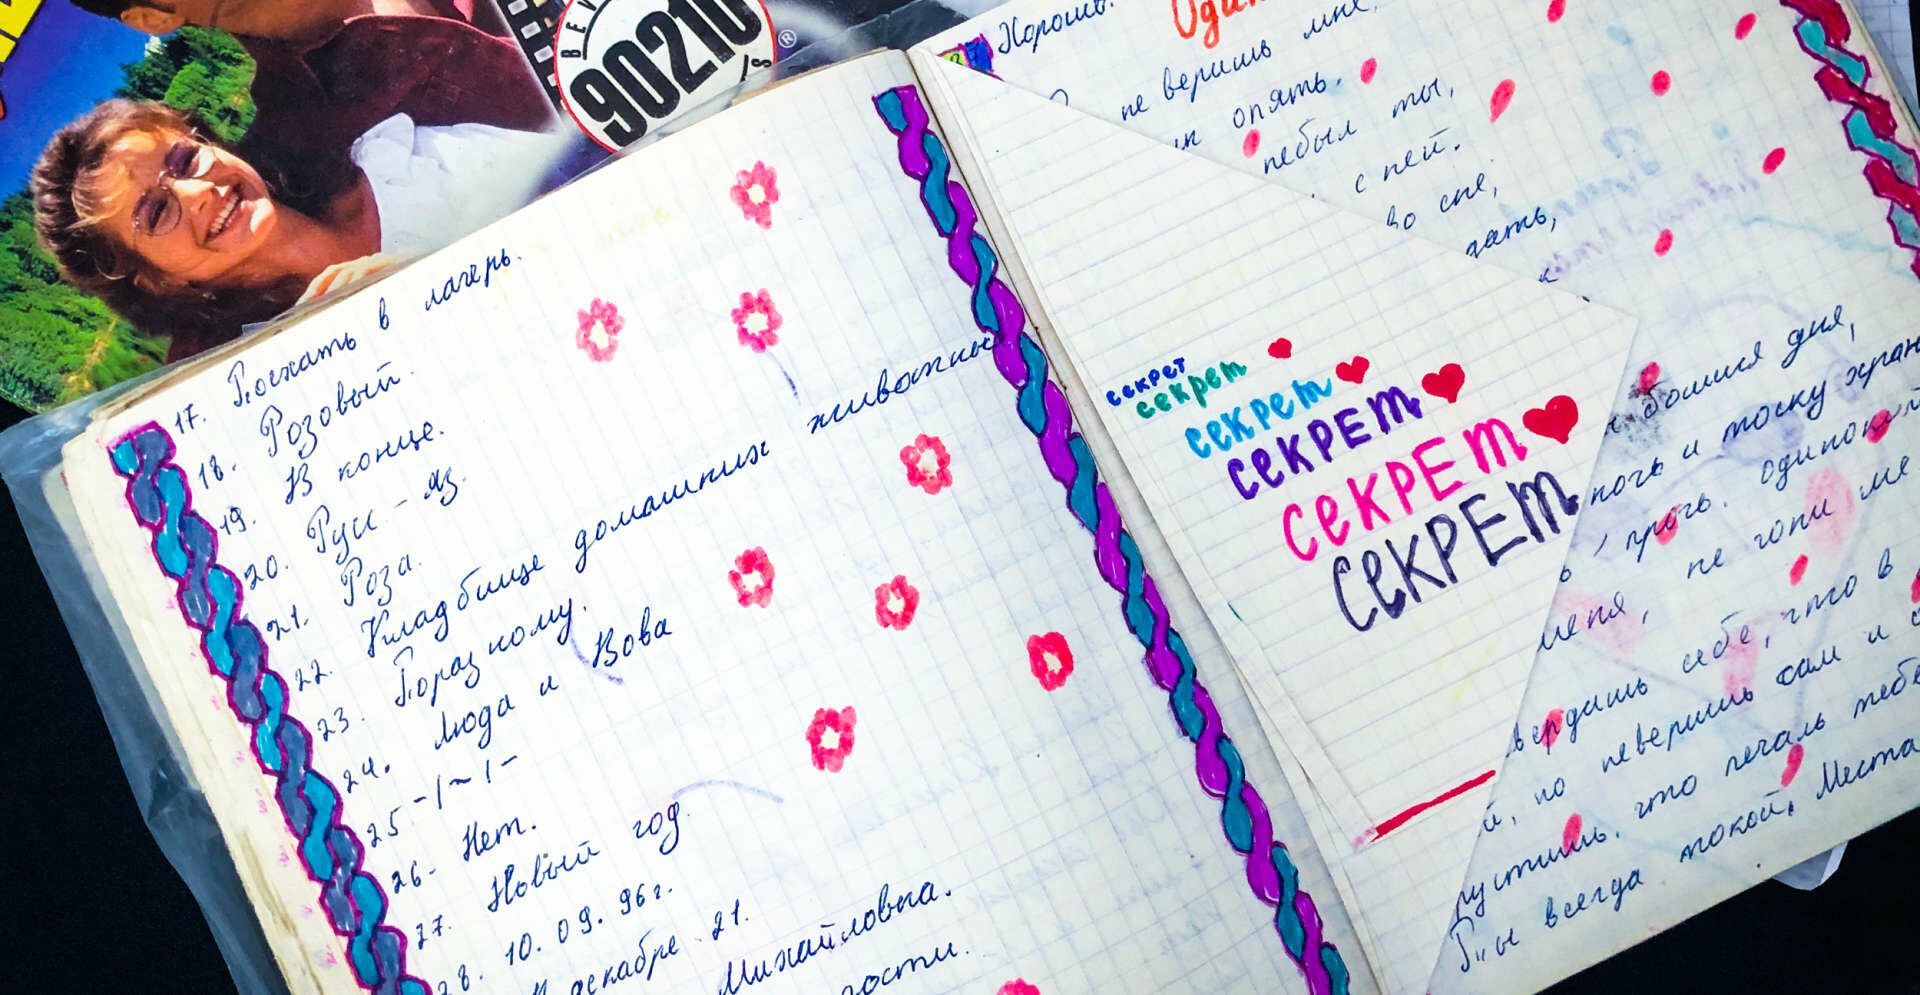 BEV
90210
®
17. Поехать в лагерь.
18. Розовый.
19. В конце.
20. Русс - яз.
21. Роза.
22. Кладбище домашних животных
23. По разному.
24. Люда и Вова
25 -1~1-
26- Нет.
27. Новый год.
28. 10. 09. 96г.
декабре 21.
Михайловна.
Хорошо.
не веришь мне,
опять.
небыл ты,
с ней.
во сне,
секрет
секрет
секрет
СЕКРЕТ
СЕКРЕТ
СЕКРЕТ
дня,
ночь и тоску хран
прочь. одинокий
меня, не гони ме
твердишь себе, что в
й, но неверишь сам и с
что печаль тебе
Ты всегда такой, Места